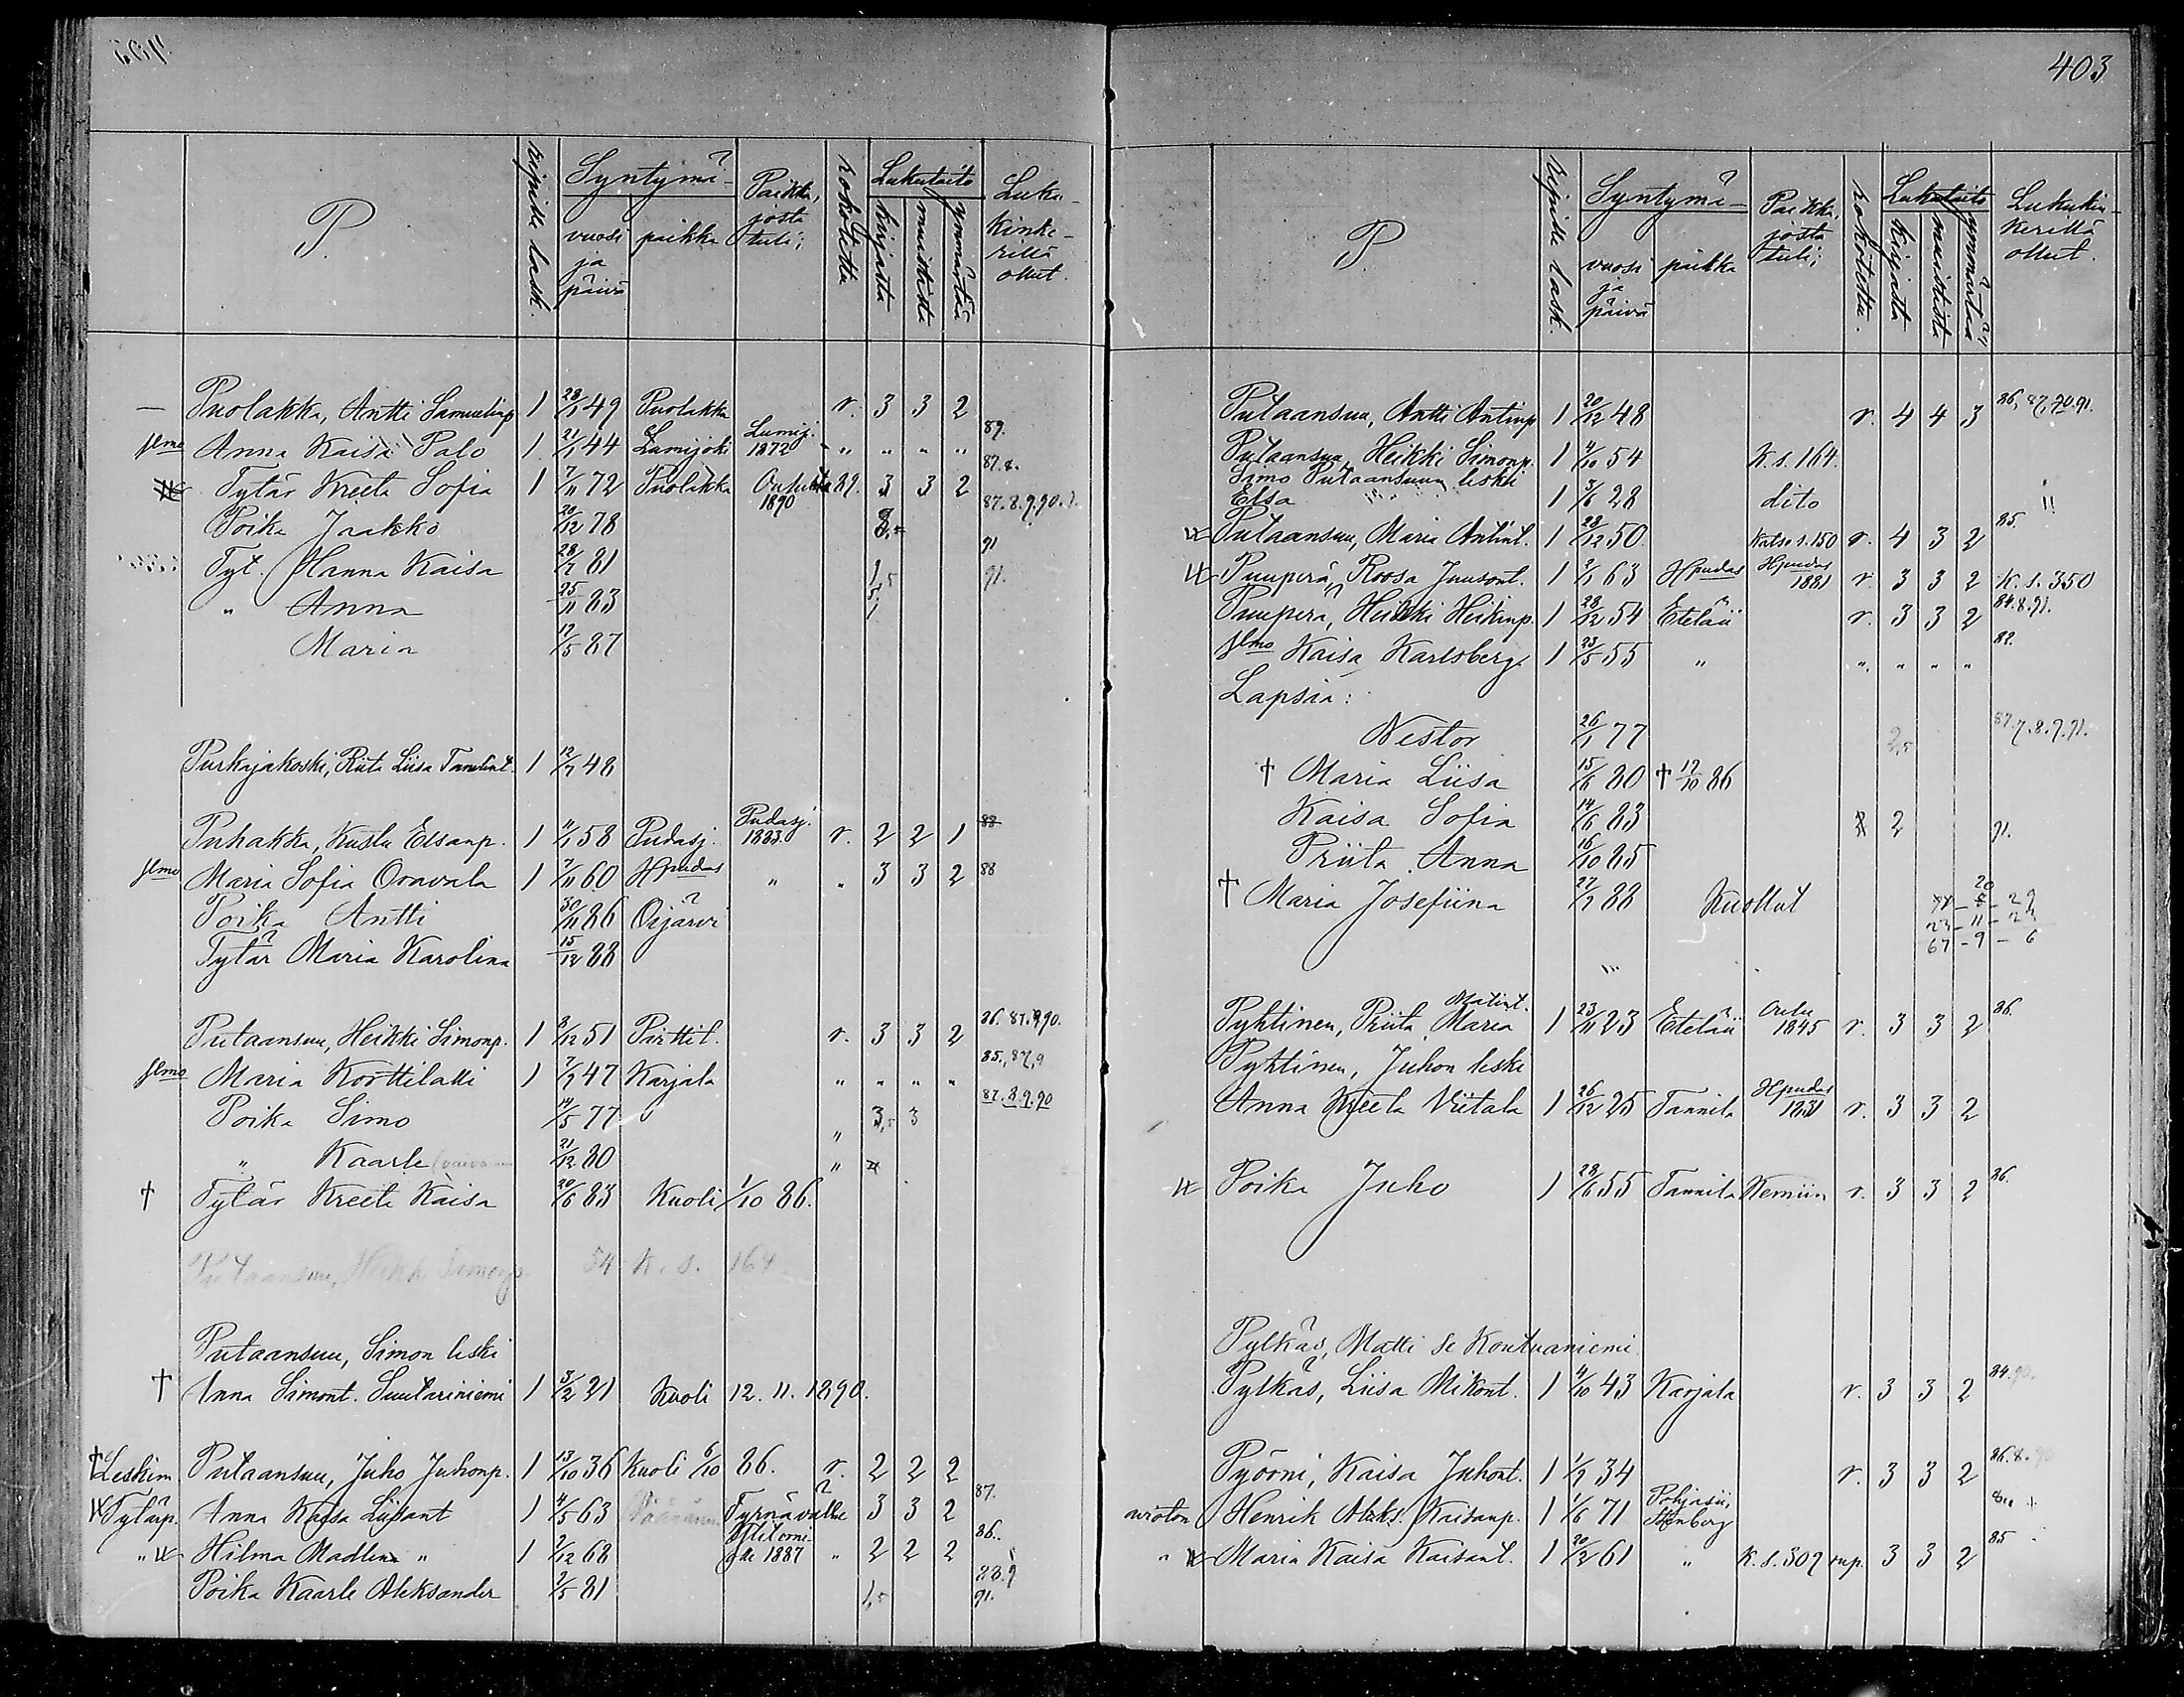 P.
Ripille lask.
Syntymä-
vuosi ja päivä
paikka
Paikka, josta tuli;
rokotettu
Lukutaito
kirjasta
muistista
ymmärtää
Luku-kinke-rillä ollut.
— Puolakka, Antti Samuelinp 1 28/1 49 Puolakka r. 3 3 2
Anna Kaisa Palo 1 21/1 44 Lumijoki Lumij. 1872 " " " " 89.
Tytär Kreeta Sofia 1 7/11 72 Puolakka 1890 89. 3 3 2 87.8.
Poika Jaakko 20/12 78 87.8.9.90.
Tyt. Hanna Kaisa 28/7 81 1,5 91
" Anna 25/11 83 1 91.
Maria 17/5 87
Purkajakoski, Riita Liisa 1 12/7 48
Puhakka, Kustu Elsanp. 1 11/1 58 Pudasj. Pudasj. 1883. r. 2 2 1 88
Maria Sofia Oravala 1 7/11 60 Hpudas " " 3 3 2 88
Poika Antti 30/11 86 Oijärvi
Tytär Maria Karolina 15/12 88
Putaansuu, Heikki Simonp. 1 8/12 51 Pirttit. r. 3 3 2 86.87.8.90.
Maria Korttilatti 1 7/7 47 Karjala " " " " 85,,87,9
Poika Simo 14/5 77 " 3,5 3 87.8.9.90
" Kaarle 21/12 80 "
† Tytär Kreeta Kaisa 20/6 83 Kuoli 1/10 86.
Putaansuu, Heikki Simonp 54 K. s. 164
Putaansuu, Simon leski
† Anna Simont. Suutariniemi 1 3/2 21 Kuoli 12. 11. 1890.
† Leskim. Putaansuu, Juho Juhonp. 1 13/10 36 Kuoli 6/10 86. r. 2 2 2
Tytärp. Anna Kaisa Liisant 1 4/5 63 Tyrnävälle 3 3 2 87.
" Hilma Madlena " 1 2/12 68 1887 " 2 2 2 86.
Poika Kaarle Aleksander 2/5 81 1,5 88.9 91.
403
P.
Ripille lask.
Syntymä-
vuosi ja päivä
paikka
Paikka, josta tuli;
rokotettu.
Lukutaito
kirjasta
muistista
ymmärtää
Lukukin-kerillä ollut.
Putaansuu, Antti Antinp 1 20/12 48 r. 4 4 3 86,87,90.91.
Putaansuu, Heikki Simonp. 1 4/10 54 K. s. 164.
Simo Putaansuun leski
Elsa " 1 3/6 28 dito "
Putaansuu, Maria Antint. 1 28/12 50 Katso s. 150 r. 4 3 2 85.
Puuperä, Roosa Juusont. 1 2/1 63 Hpudas Hpudas 1881 r. 3 3 2 K. s. 350
Puuperä, Heikki Heikinp. 1 28/12 54 Eteläii r. 3 3 2 84.8.91.
Kaisa Karlsberg 1 23/5 55 " " " " " 82.
Lapsia:
Nestor 26/1 77 2,5 87.7.8.9.91.
† Maria Liisa 15/6 80 † 17/10 86
Kaisa Sofia 14/6 83 2 91.
Priita Anna 16/10 85
† Maria Josefiina 27/7 88 Kuollut
20
23 - 11 - 23
67 - 9 - 6
Matint.
Pyhtinen, Priita Maria 1 23/11 23 Eteläii Oulu 1845 r. 3 3 2 86.
Pyhtinen, Juhon leski
Anna Kreeta Viitala 1 26/12 25 Tannila Hpudas 1831 r. 3 3 2
Poika Juho 1 28/6 55 Tannila Kemiin r. 3 3 2 86.
Pylkäs, Matti se Kontuaniemi
Pylkäs, Liisa Mikont. 1 4/10 43 Karjala r. 3 3 2 84.90.
Pyörni, Kaisa Juhont. 1 1/7 34 r. 3 3 2 86.8.90
avioton Henrik Aleks. Kaisanp. 1 1/6 71 Pohjasii,
" Maria Kaisa Kaisant. 1 20/2 61 " K. s. 309 rup. 3 3 2 85